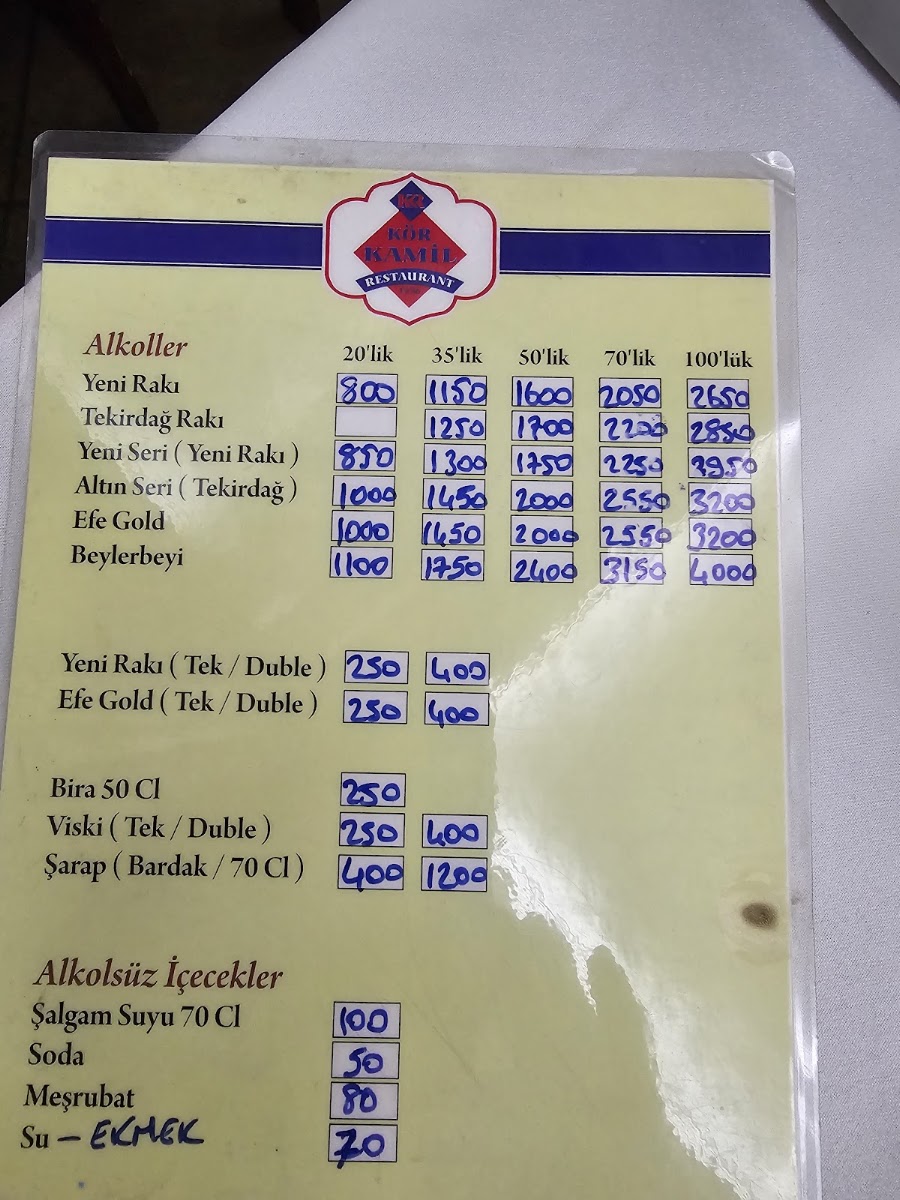 KÖR
KAMİL
RESTAURANT
Alkoller 20'lik 35'lik 50'lik 70'lik 100'lük
Yeni Rakı 800 1150 1600 2050 2650
Tekirdağ Rakı 1250 1700 2200 2850
Yeni Seri ( Yeni Rakı ) 850 1300 1750 2250
Altın Seri ( Tekirdağ ) 1000 1450 2000 2550 3200
Efe Gold 1000 1450 2000 2550 3200
Beylerbeyi 1100 1750 2400 3150 4000
Yeni Rakı ( Tek / Duble ) 250 400
Efe Gold ( Tek / Duble ) 250 400
Bira 50 Cl 250
Viski ( Tek / Duble ) 250 400
Şarap ( Bardak / 70 Cl ) 400 1200
Alkolsüz İçecekler
Şalgam Suyu 70 Cl 100
Soda 50
Meşrubat 80
Su – EKMEK 70